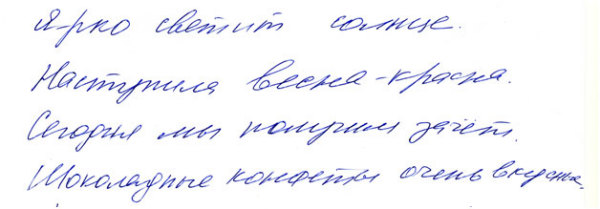 Ярко светит солнце.
Наступила весна-красна.
Сегодня мы получим зачёт.
Шоколадные конфеты очень вкусны.